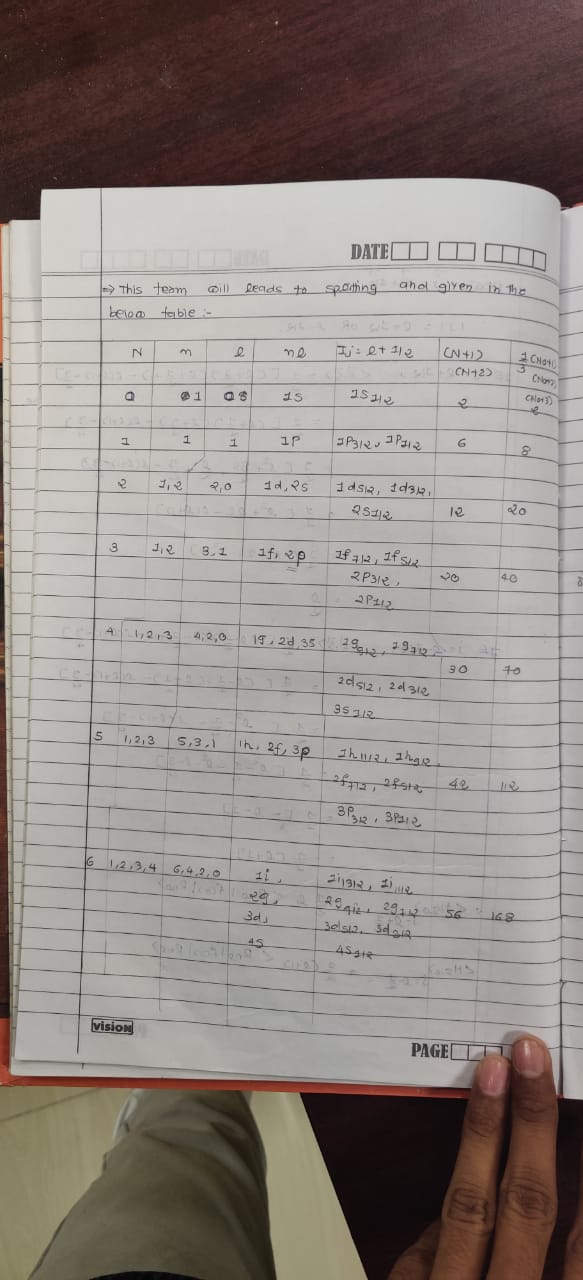 DATE
⇒ This team will leads to spotting and given in the
below table :-
N n l nl Ij = l + 1/2 (N+1) (N+2) 1/3 (N0+1) (N0+2) (N0+3)
0 1 0 1S 1S1/2 2 2
1 1 1 1P 1P3/2, 1P1/2 6 8
2 1,2 2,0 1d, 2S 1d5/2, 1d3/2,
2S1/2 12 20
3 1,2 3,1 1f, 2p 1f7/2, 1f5/2
2P3/2, 20 40
2P1/2
4 1,2,3 4,2,0 1g, 2d, 3S 1g9/2, 1g7/2,
30 70
2d5/2, 2d3/2
3S1/2
5 1,2,3 5,3,1 1h, 2f, 3p 1h11/2, 1h9/2,
2f7/2, 2f5/2 42 112
3P3/2, 3P1/2
6 1,2,3,4 6,4,2,0 1i, 1i13/2, 1i11/2
2g, 2g9/2, 2g7/2 56 168
3d, 3d5/2, 3d3/2
4S 4S1/2
vision
PAGE